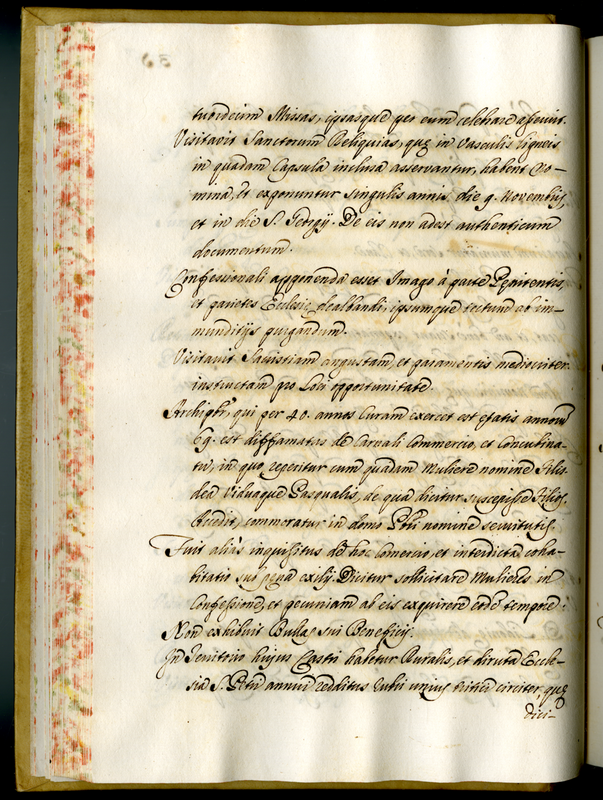 tuordecim Missas, ipsasque per eum celebrare asseruit.
Visitavit Sanctorum Reliquias, quę in Vasculis ligneis
in quadam Capsula inclusa asservantur, habent No-
mina, et exponuntur singulis annis, die 9. Novembris,
et in die S. Georgij. De eis non adest authenticum
documentum.
Confessionali apponenda esset Imago à parte Pęnitentis,
et parietes Ecclesię dealbandi, ipsumque tectum ab im-
munditijs purgandum.
Visitavit Sacristiam angustam, et paramentis mediocriter
instructam pro Loci opportunitate.
Archipbr, qui per 40. annos Curam exercet est ętatis annorum
69. est diffamatus de Carnali Commercio, et Concubina-
tu, in quo reperitur cum quadam Muliere nomine
Vidua Pasqualis, de qua dicitur suscepisse Filios.
Accedit, commoratur in domo Pbri nomine servitutis.
Fuit aliàs inquisitus de hoc Comercio, et interdicta coha-
bitatio sub pęna exilij. Dicitur sollicitare Mulieres in
Confessione, et pecuniam ab eis exquirere eodẽ tempore.
Non exhibuit Bullas sui Beneficij.
In Territorio hujus Castri habetur Ruralis, et diruta Eccle-
sia S. Petri annui redditus Rubri unius tritici circiter, quę
dici-